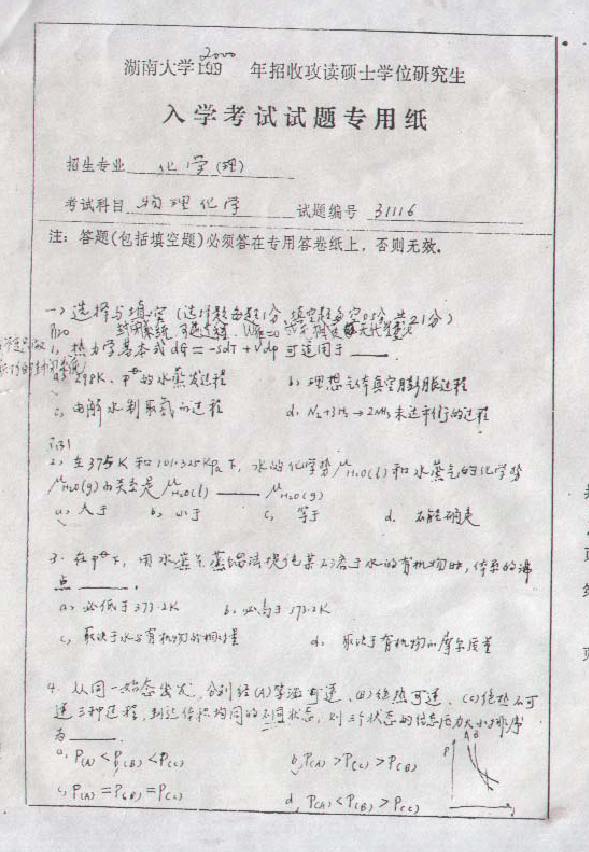 湖南大学199 2000 年招收攻读硕士学位研究生
入学考试试题专用纸
招生专业 化学(理)
考试科目 物理化学 试题编号 31116
注：答题(包括填空题)必须答在专用答卷纸上，否则无效。
一、选择与填空（选择题每题1分，填空题每空0.5分，共21分）
1、热力学基本式 dG = -SdT + Vdp 可适用于 ____.
a. 298K、p⊖的水蒸发过程 b、理想气体真空膨胀过程
c、电解水制取氢的过程 d. N₂+3H₂→2NH₃未达平衡的过程
2、在375K和101.325KPa下，水的化学势μH₂O(l)和水蒸气的化学势
μH₂O(g)的关系是 μH₂O(l) ____ μH₂O(g)
a、大于 b、小于 c、等于 d. 不能确定
3、在p⊖下，用水蒸气蒸馏法提纯某不溶于水的有机物时，体系的沸
点 ____.
a、必低于373.2K b、必高于373.2K
c、取决于水与有机物的相对量 d、取决于有机物的摩尔质量
4. 从同一始态出发，分别经(A)等温可逆、(B)绝热可逆、(C)绝热不可
逆三种过程，到达体积相同的不同状态，则三个状态的体系压力大小排序
为 ____.
a、P(A) < P(B) < P(C) b、P(A) > P(C) > P(B)
c、P(A) = P(B) = P(C) d、P(A) < P(B) > P(C)
P A B